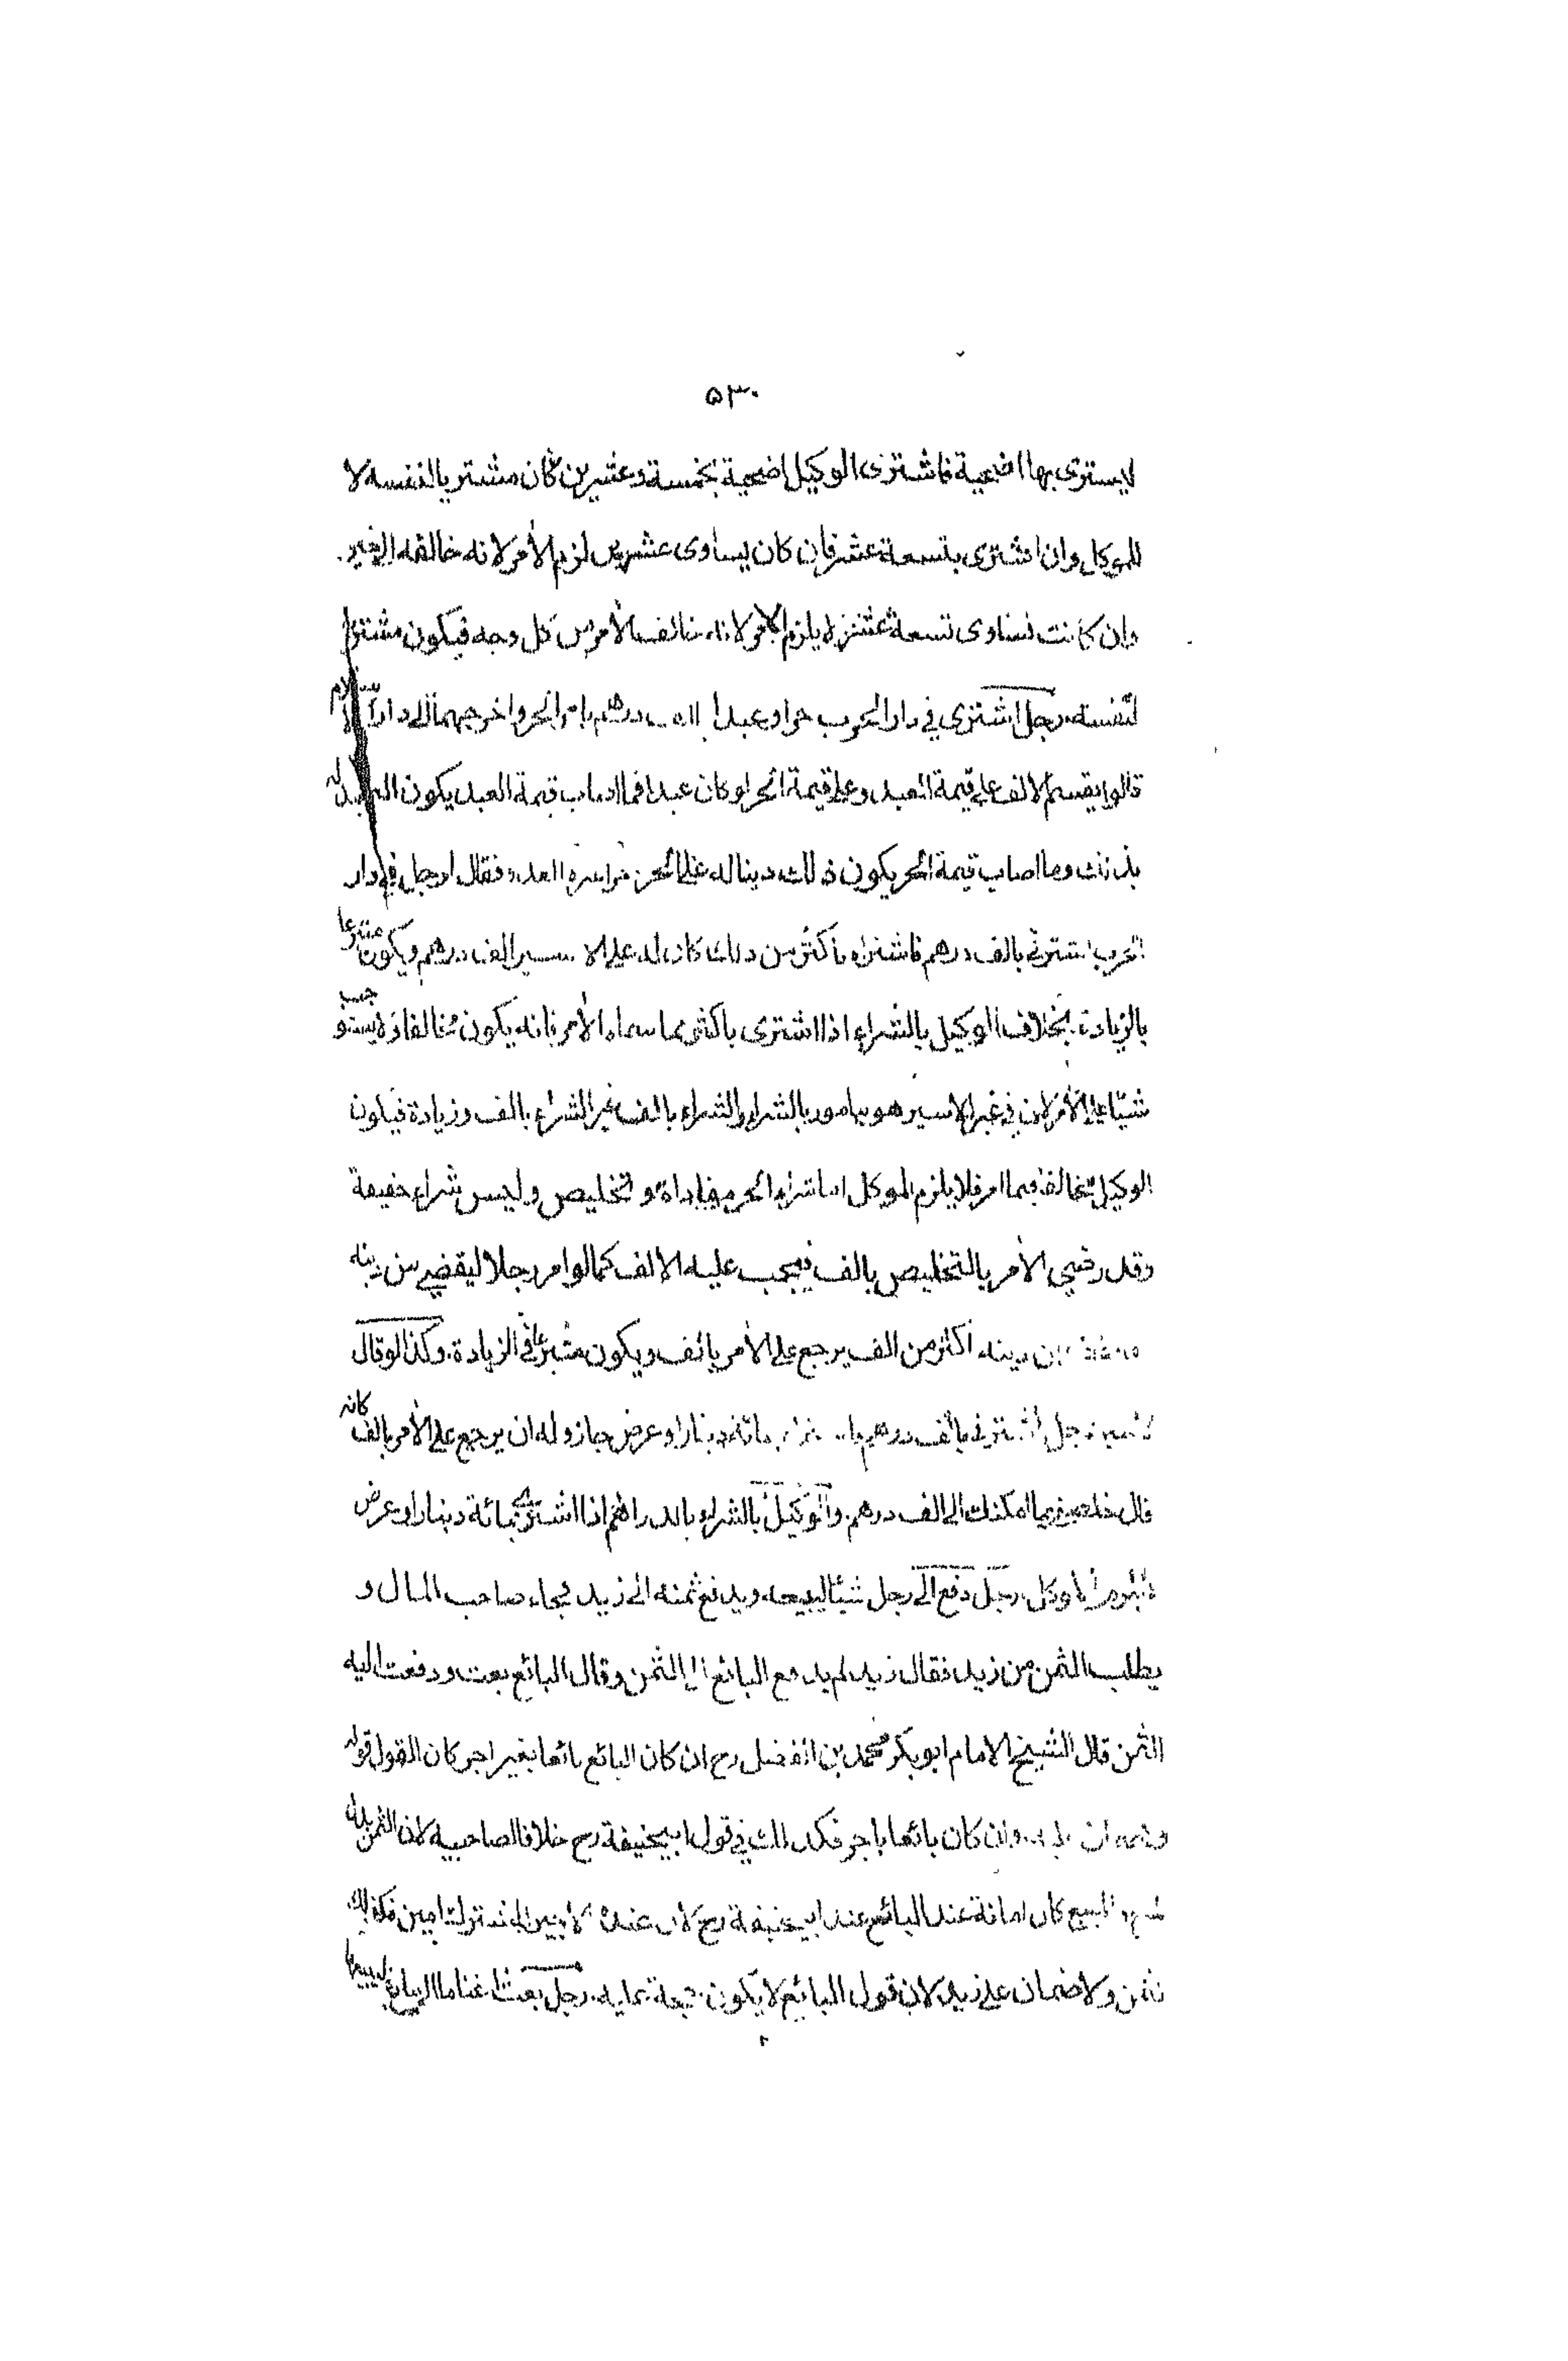 ٥٣٠
ليشترى بها اضحية فاشترى الوكيل اضحية بخمسة وعشرين كان مشتريا لنفسه لا
للموكل وان اشترى بتسعة عشر فان كان يساوى عشرين لزم الآمر لانه خالفه الى خير
وان كانت تساوى تسعة عشر لا يلزم الآمر لانه خالف الآمر من كل وجه فيكون مشتريا
لنفسه رجل اشترى في دار الحرب حرا وعبدا بالف درهم بامر الحر واخرجهما الى دار الاسلام
قالوا يقسم الالف على قيمة العبد وعلى قيمة الحر لو كان عبدا فما اصاب قيمة العبد يكون العبد له
بذلك وما اصاب قيمة الحر يكون ذلك دينا له على الحر فقال لرجل في دار
الحرب اشترنى بالف درهم فاشتراه باكثر من ذلك كان له على الاسير الف درهم ويكون متبرعا
بالزيادة بخلاف الوكيل بالشراء اذا اشترى باكثر مما سماه الآمر فانه يكون مخالفا ولا يستوجب
شيئا على الآمر لان في غير الاسير هو مامور بالشراء والشراء بالف غير الشراء بالف وزيادة فيكون
الوكيل مخالفا فيما امر فلا يلزم الموكل اما شراء الحر مفاداة و تخليص وليس شراء حقيقة
وقد رضى الآمر بالتخليص بالف فيجب عليه الالف كما لو امر رجلا ليقضى من دينه
دينه اكثر من الف يرجع على الآمر بالف ويكون متبرعا في الزيادة. وكذا لو قال
رجل اشترنى بالف درهم بمائة دينار او عرض جاز وله ان يرجع على الآمر بالف كانه
قال خلصنى بما امكنك الى الف درهم. والوكيل بالشراء بالدراهم اذا اشترى بمائة دينار او عرض
رجل دفع الى رجل شيئا ليبيعه ويدفع ثمنه الى زيد فجاء صاحب المال و
يطلب الثمن من زيد فقال زيد لم يدفع البائع الى الثمن وقال البائع بعت ودفعت اليه
الثمن قال الشيخ الامام ابو بكر محمد بن الفضل رح ان كان البائع بائعا بغير اجر كان القول قوله
وان كان بائعا باجر فكذلك في قول ابيحنيفة رح خلافا لصاحبيه لان الثمن بدل
المبيع كان امانة عند البائع عند ابيحنيفة رح لان عنده الاجير المشترك امين فكذلك
ثمن ولا ضمان على زيد لان قول البائع لا يكون حجة عليه. رجل بعث اغناما الى بياع ليبيعها